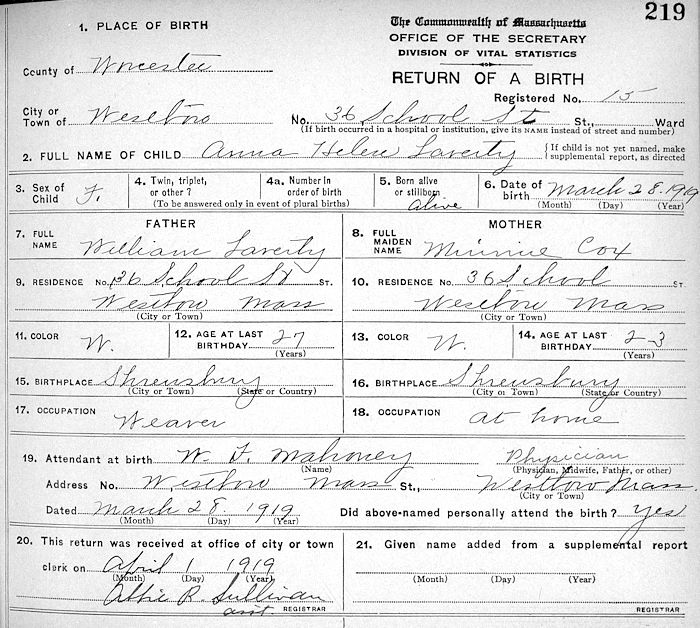 219
1. PLACE OF BIRTH
The Commonwealth of Massachusetts
OFFICE OF THE SECRETARY
DIVISION OF VITAL STATISTICS
RETURN OF A BIRTH
County of Worcester
Registered No. 15
City or
Town of Westboro No. 36 School St St., Ward
(If birth occurred in a hospital or institution, give its NAME instead of street and number)
2. FULL NAME OF CHILD Anna Helen Laverty { If child is not yet named, make supplemental report, as directed
3. Sex of Child F.
4. Twin, triplet, or other?
4a. Number in order of birth
(To be answered only in event of plural births)
5. Born alive or stillborn alive
6. Date of birth March 28. 1919
(Month) (Day) (Year)
FATHER
7. FULL NAME William Laverty
MOTHER
8. FULL MAIDEN NAME Minnie Cox
9. RESIDENCE No. 36 School St ST.
Westboro Mass
(City or Town)
10. RESIDENCE No. 36 School ST.
Westboro Mass
(City or Town)
11. COLOR W.
12. AGE AT LAST BIRTHDAY 27
(Years)
13. COLOR W.
14. AGE AT LAST BIRTHDAY 23
(Years)
15. BIRTHPLACE Shrewsbury
(City or Town) (State or Country)
16. BIRTHPLACE Shrewsbury
(City or Town) (State or Country)
17. OCCUPATION Weaver
18. OCCUPATION At home
19. Attendant at birth W. F. Mahoney Physician
(Name) (Physician, Midwife, Father, or other)
Address No. Westboro Mass St., Westboro Mass.
(City or Town)
Dated March 28. 1919 Did above-named personally attend the birth? Yes
(Month) (Day) (Year)
20. This return was received at office of city or town
clerk on April 1 1919
(Month) (Day) (Year)
Abbie R. Sullivan
asst. REGISTRAR
21. Given name added from a supplemental report
(Month) (Day) (Year)
REGISTRAR